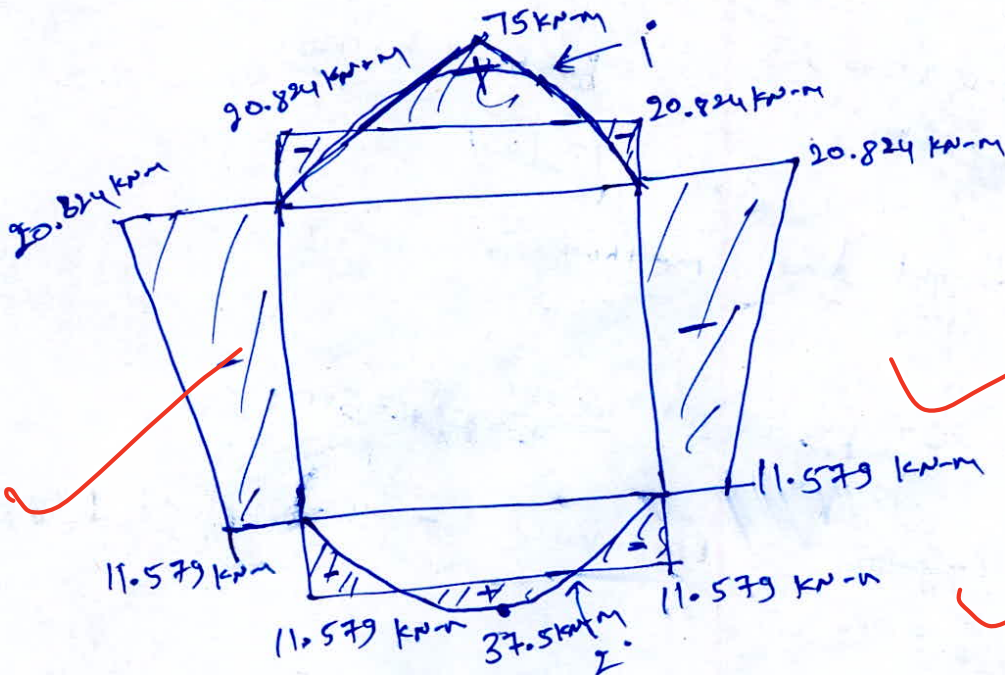 75 kN-m
i
20.824 kN-m
20.824 kN-m
20.824 kN-m
20.824 kN-m
11.579 kN-m
11.579 kN-m
11.579 kN-m
11.579 kN-m
37.5 kN-m